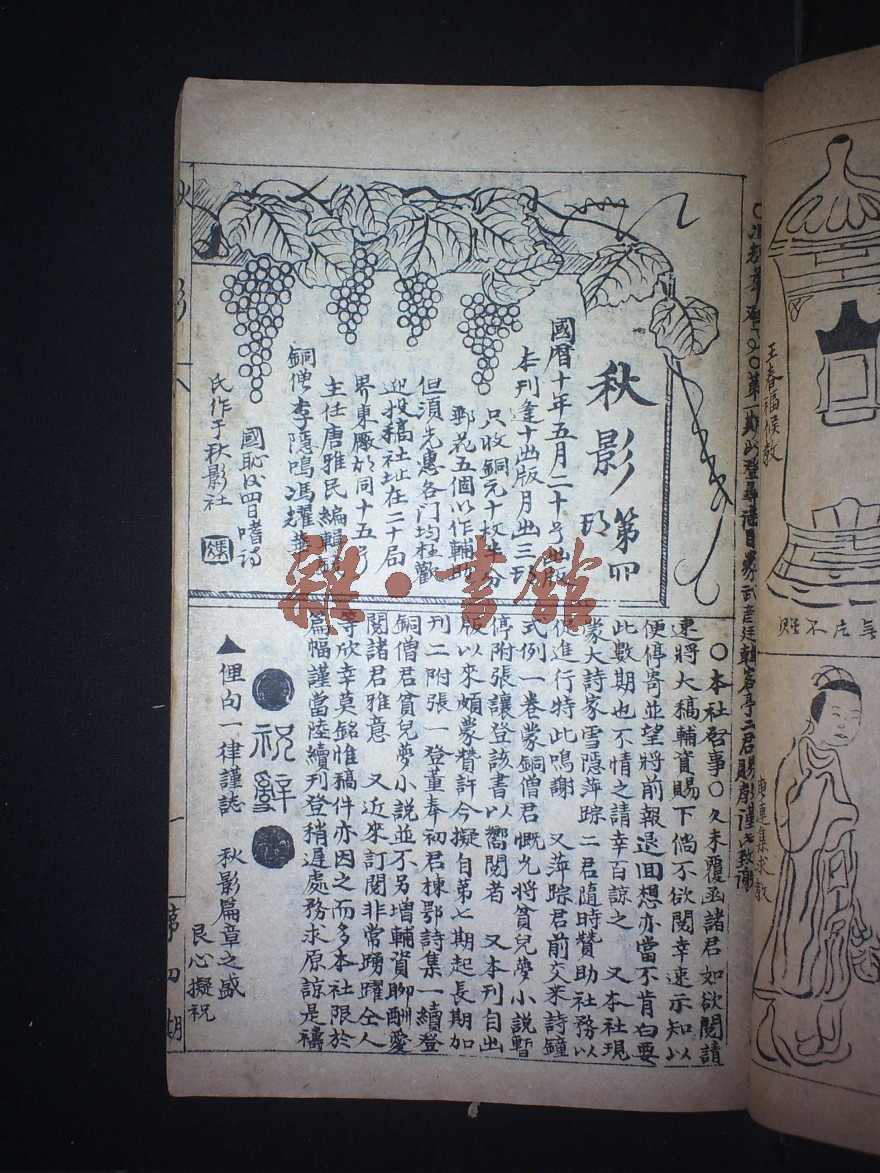 秋影 第四
國曆十年五月二十号出版
本刊逢十出版月出三
只收銅元十枚半分
郵花五個以作輔助
但須先惠各門均在歡
迎投稿社址在二十局
界東廠胡同十五号
主任唐雅民編輯
銅僧李隱鳴馮耀
國恥後四日嗜詩
氏作于秋影社
〇本社啓事〇久未覆函諸君如欲閱請
速將大稿輔資賜下倘不欲閱幸速示知以
便停寄並望將前報退回想亦當不肯白要
此數期也不情之請幸百諒之 又本社現
蒙大詩家雪隱萍踪二君隨時贊助社務以
促進行特此鳴謝 又萍踪君前交来詩鐘
式例一卷蒙銅僧君慨允將貧兒夢小說暫
停附張讓登該書以嚮閱者 又本刊自出
版以來頗蒙贊許今擬自第七期起長期加
刊二附張一登董奉初君棟鄂詩集一續登
銅僧君貧兒夢小說並不另增輔資聊酬愛
閱諸君雅意 又近來訂閱非常踴躍仝人
等欣幸莫銘惟稿件亦因之而多本社限於
篇幅謹當陸續刊登稍遲處務求原諒是禱
祝辭
▲俚句一律謹誌 秋影篇章之盛
良心擬祝
秋
影
一
第四期
王春福候教
雜·書館